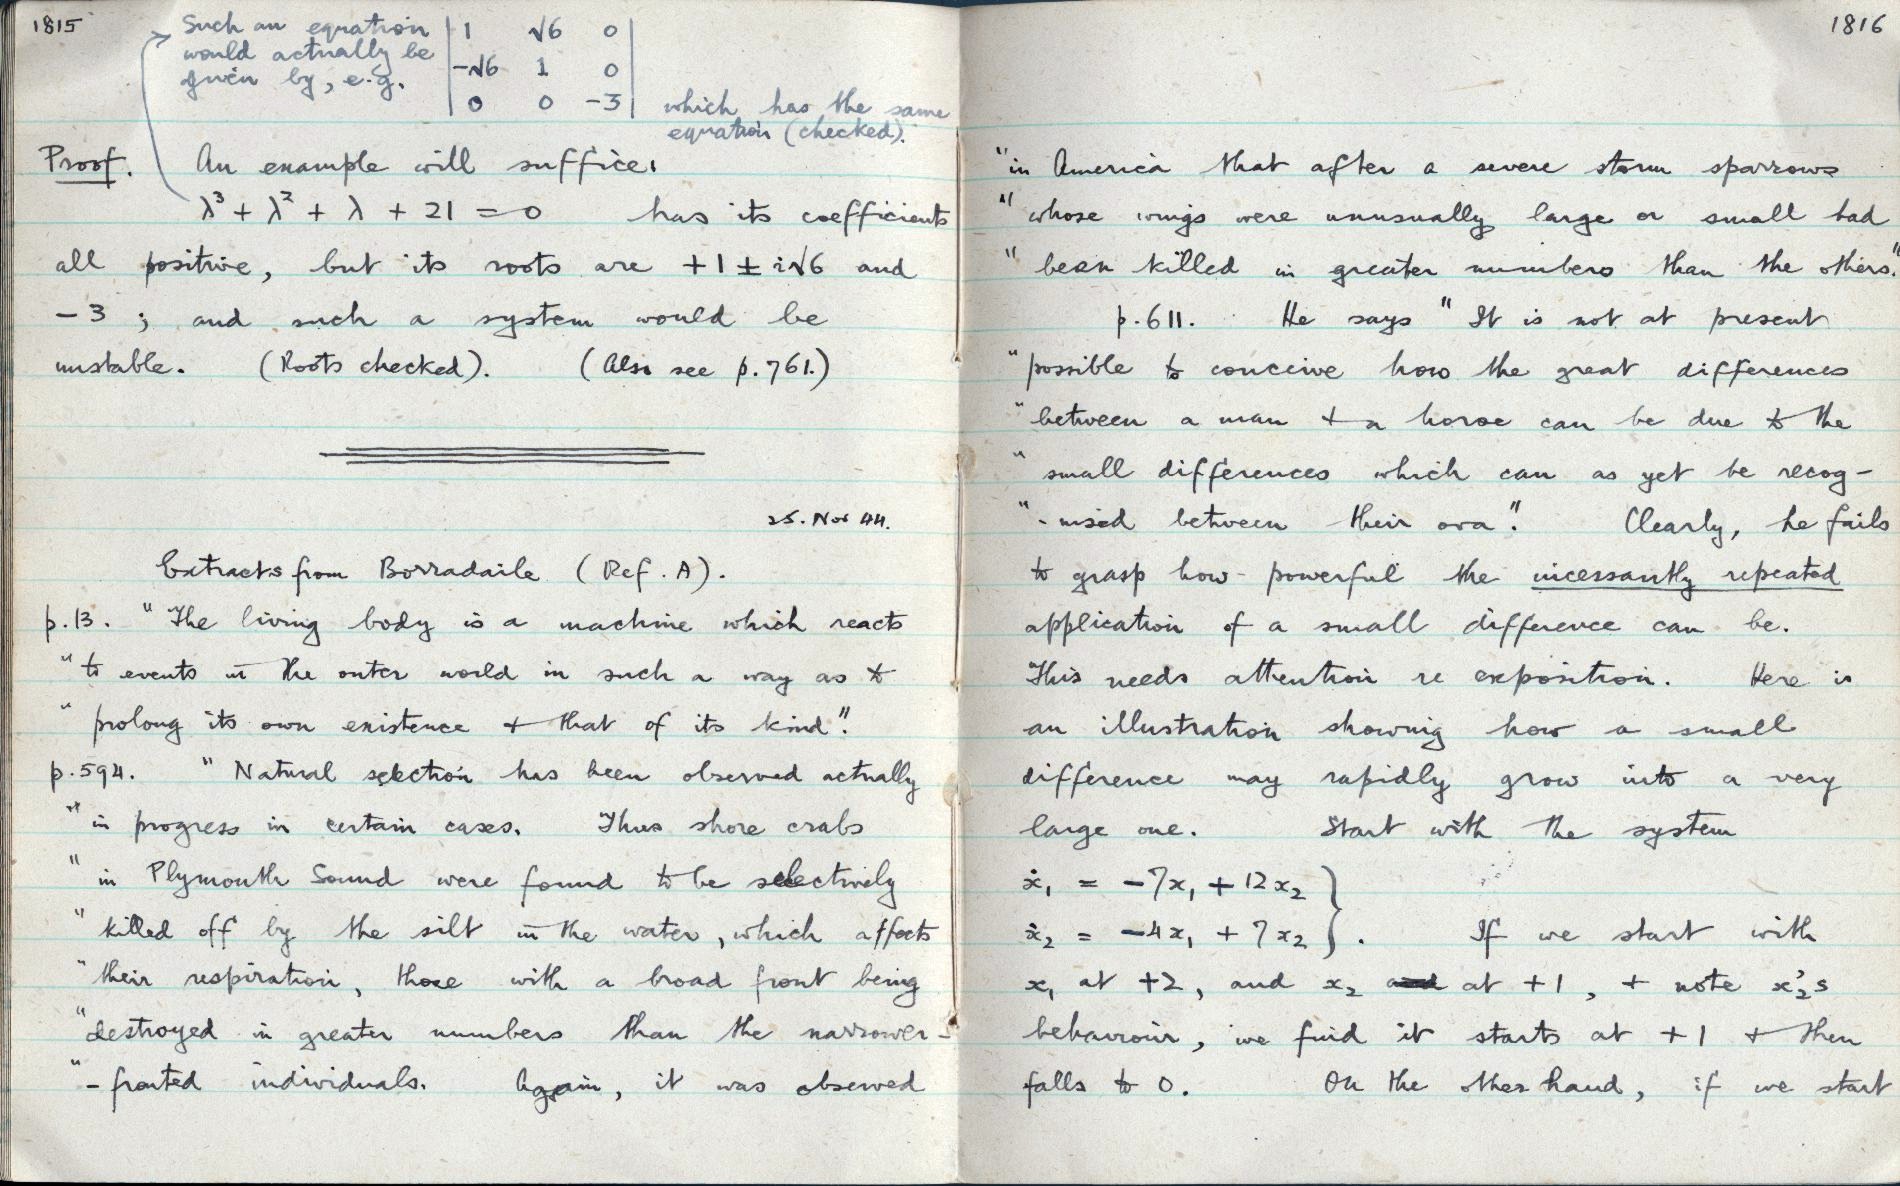 1815
Such an equation
would actually be
given by, e.g.
1 √6 0
-√6 1 0
0 0 -3
which has the same
equation (checked).
Proof. An example will suffice.
λ³ + λ² + λ + 21 = 0 has its coefficients
all positive, but its roots are +1 ± i√6 and
-3 ; and such a system would be
unstable. (Roots checked). (Also see p.761.)
25. Nov 44.
Extracts from Borradaile (Ref. A).
p.13. "The living body is a machine which reacts
"to events in the outer world in such a way as to
"prolong its own existence + that of its kind".
p.594. "Natural selection has been observed actually
"in progress in certain cases. Thus shore crabs
"in Plymouth Sound were found to be selectively
"killed off by the silt in the water, which affects
"their respiration, those with a broad front being
"destroyed in greater numbers than the narrower-
"-fronted individuals. Again, it was observed
1816
"in America that after a severe storm sparrows
"whose wings were unusually large or small had
"been killed in greater numbers than the others."
p.611. He says "It is not at present
"possible to conceive how the great differences
"between a man + a horse can be due to the
"small differences which can as yet be recog-
"-nised between their ova". Clearly, he fails
to grasp how powerful the incessantly repeated
application of a small difference can be.
This needs attention re exposition. Here is
an illustration showing how a small
difference may rapidly grow into a very
large one. Start with the system
ẋ₁ = -7x₁ + 12x₂
ẋ₂ = -4x₁ + 7x₂ }. If we start with
x₁ at +2, and x₂ at +1, + note x₂'s
behaviour, we find it starts at +1 + then
falls to 0. On the other hand, if we start